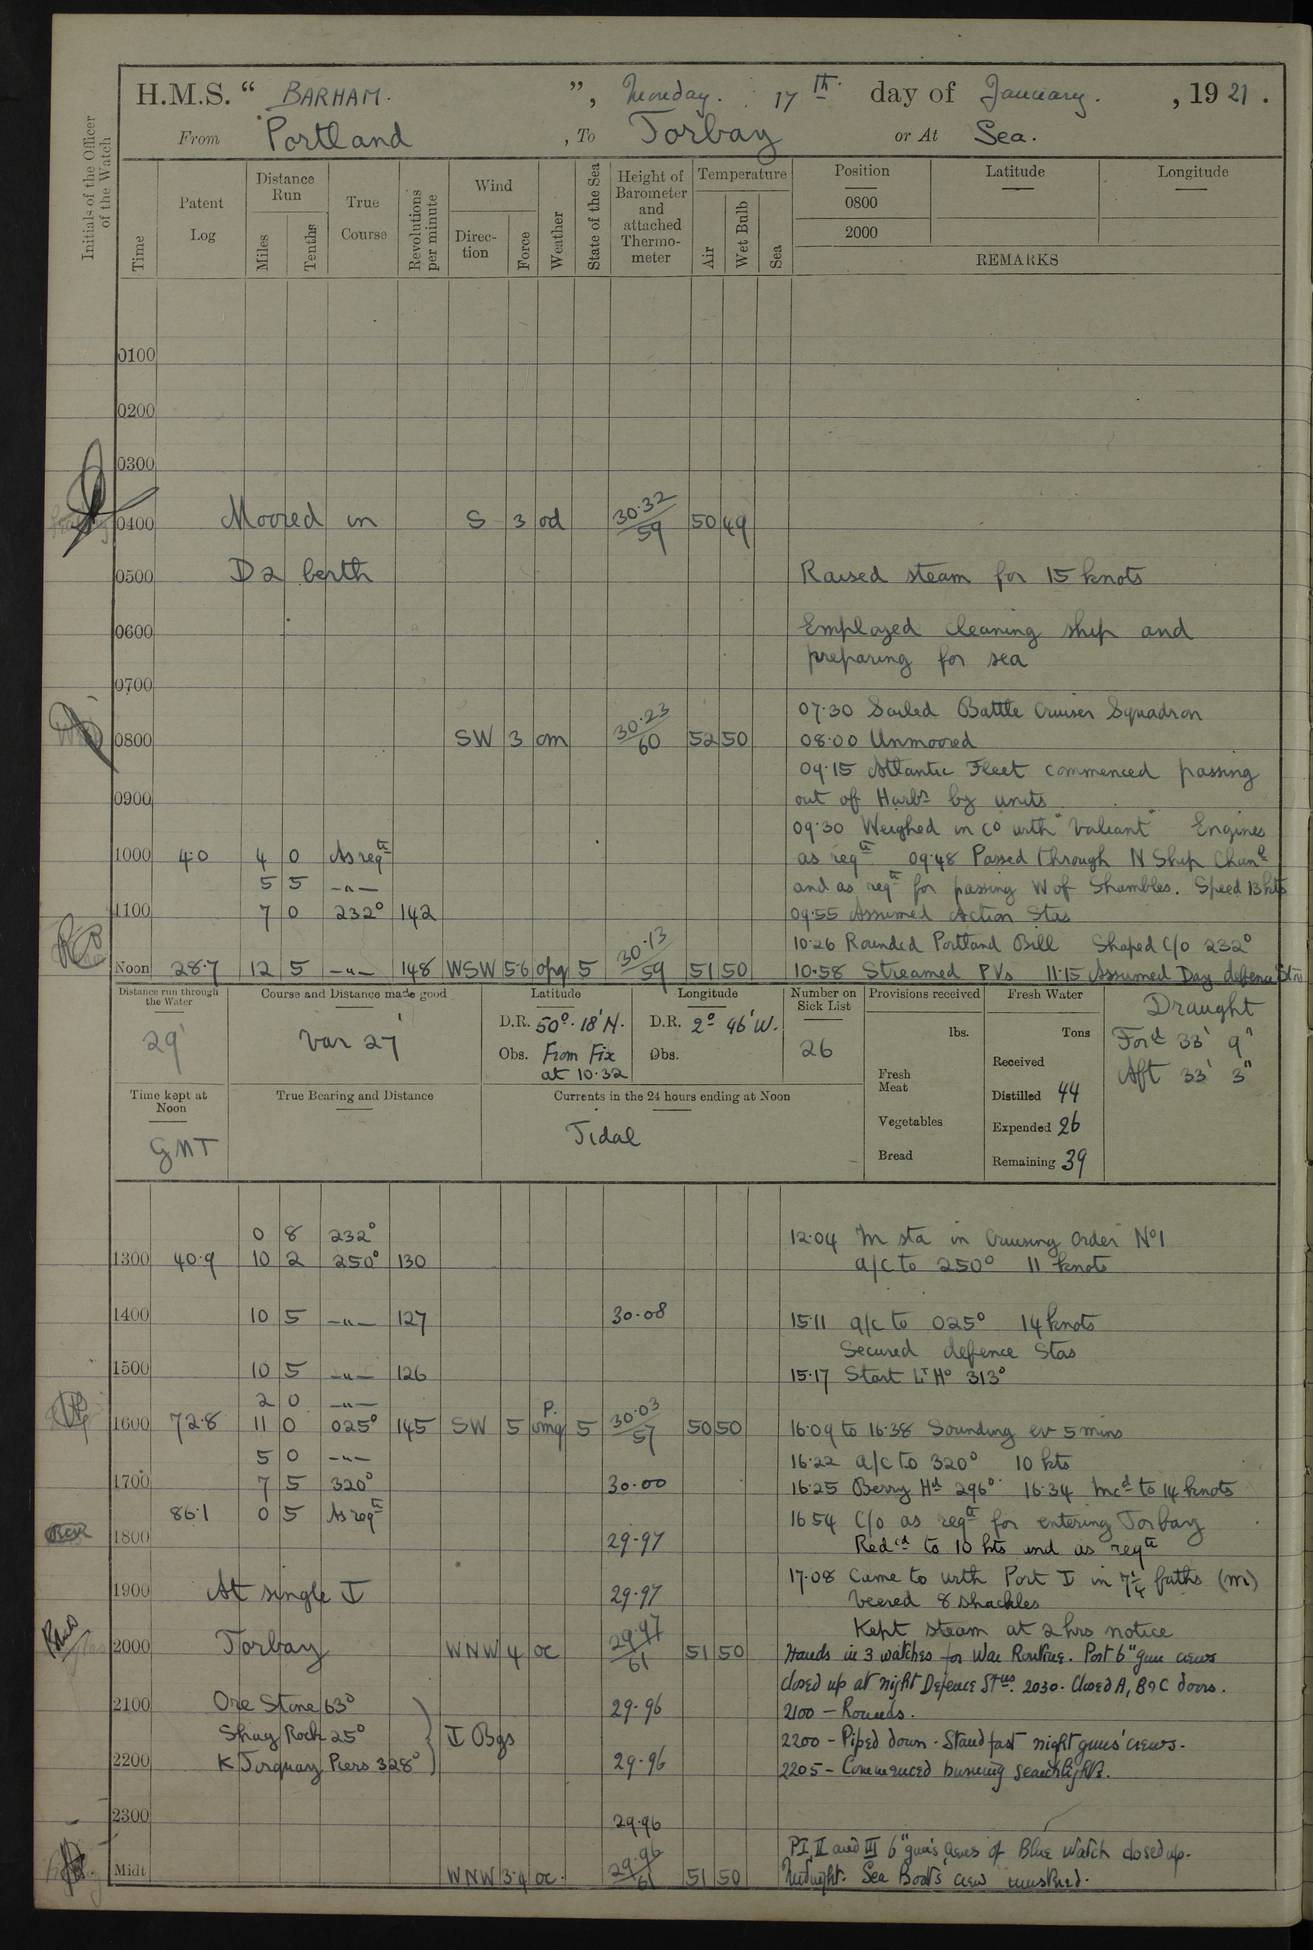 H.M.S. " BARHAM. ", Monday. 17th day of January. , 1921.
From Portland , To Torbay or At Sea.
Initials of the Officer of the Watch
Time
Patent Log
Distance Run
Miles
Tenths
True Course
Revolutions per minute
Wind
Direc-tion
Force
Weather
State of the Sea
Height of Barometer and attached Thermo-meter
Temperature
Air
Wet Bulb
Sea
Position
0800
2000
Latitude
Longitude
REMARKS
0100
0200
0300
0400 Moored in S 3 od 30.32/59 50 49
0500 D2 berth Raised steam for 15 knots
0600 Employed cleaning ship and
preparing for sea
0700
07.30 Sailed Battle Cruiser Squadron
0800 SW 3 om 30.23/60 52 50 08.00 Unmoored
09.15 Atlantic Fleet commenced passing
0900 out of Harbr by units
09.30 Weighed in Co with "Valiant" Engines
1000 4.0 4 0 As reqte as reqte 09.48 Passed through N Ship Chanl
5 5 -"- and as reqte for passing W of Shambles. Speed 13 kts
1100 7 0 232° 142 09.55 Assumed Action Stas
10.26 Rounded Portland Bill Shaped C/o 232°
Noon 28.7 12 5 -"- 148 WSW 5-6 opq 5 30.13/59 51 50 10.58 Streamed PVs 11.15 Assumed Day defence Stns
Distance run through the Water
29'
Course and Distance made good
Var 27'
Latitude
D.R. 50°.18'N.
Obs. From Fix
at 10.32
Longitude
D.R. 2° 46'W.
Obs.
Number on Sick List
26
Provisions received
lbs.
Fresh Meat
Vegetables
Bread
Fresh Water
Tons
Received
Distilled 44
Expended 26
Remaining 39
Draught
Ford 33' 9"
Aft 33' 3"
Time kept at Noon
GMT
True Bearing and Distance
Currents in the 24 hours ending at Noon
Tidal
0 8 232° 12.04 In sta in Cruising Order No1
1300 40.9 10 2 250° 130 a/c to 250° 11 knots
1400 10 5 -"- 127 30.08 15.11 a/c to 025° 14 knots
Secured defence Stas
1500 10 5 -"- 126 15.17 Start Lt Ho 313°
2 0 -"-
1600 72.8 11 0 025° 145 SW 5 p. omq 5 30.03/57 50 50 16.09 to 16.38 Sounding ev 5 mins
5 0 -"- 16.22 a/c to 320° 10 kts
1700 7 5 320° 30.00 16.25 Berry Hd 296° 16.34 Incd to 14 knots
86.1 0 5 As reqte 16 54 C/o as reqte for entering Torbay
1800 29.97 Redcd to 10 kts and as reqte
1900 At single I 29.97 17.08 Came to with Port I in 7¼ faths (m)
veered 8 shackles
Kept steam at 2 hrs notice
2000 Torbay WNW 4 oc 29.97/61 51 50 Hands in 3 watches for War Routine. Port 6" gun crews
closed up at night Defence Stns. 2030. Closed A, B & C doors.
2100 Ore Stone 63° 29.96 2100 - Rounds.
Shag Rock 25° I Bgs 2200 - Piped down. Stand fast night guns' crews.
2200 K Torquay Piers 328° 29.96 2205 - Commenced burning searchlights.
2300 29.96
PI, II and III 6" guns crews of Blue Watch closed up.
Midt WNW 3-4 oc. 29.96/61 51 50 Midnight. Sea Boat's crew mustered.